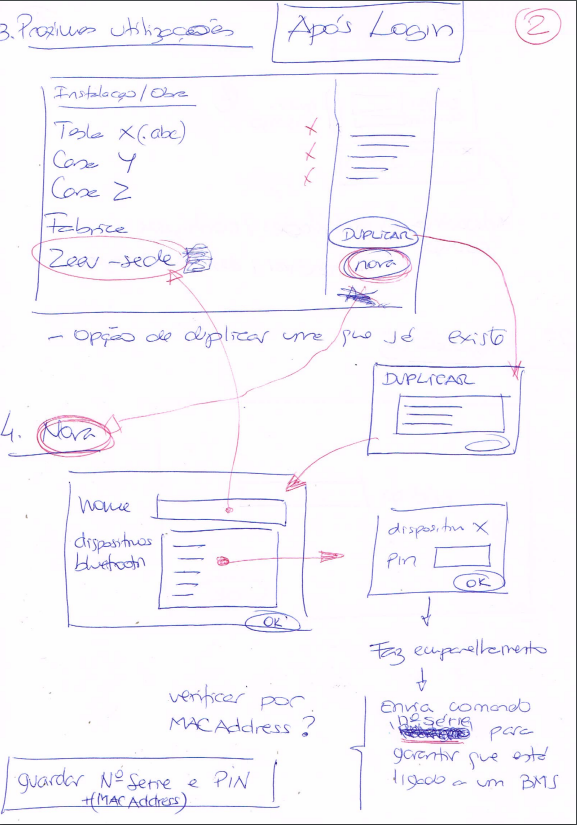 3. Próximas utilizações
Após Login
2
Instalação/Obra
Tesla X(.abc)
Casa Y
Casa Z
Fabrica
Zeev - sede
DUPLICAR
nova
- opção de duplicar uma que já existe
DUPLICAR
4. Nova
nome
dispositivos
bluetooth
OK
dispositivo X
Pin
OK
Faz emparelhamento
Envia comando
nº série
para
garantir que está
ligado a um BMS
verificar por
MAC Address?
guardar Nº Serie e PIN
+(MAC Address)